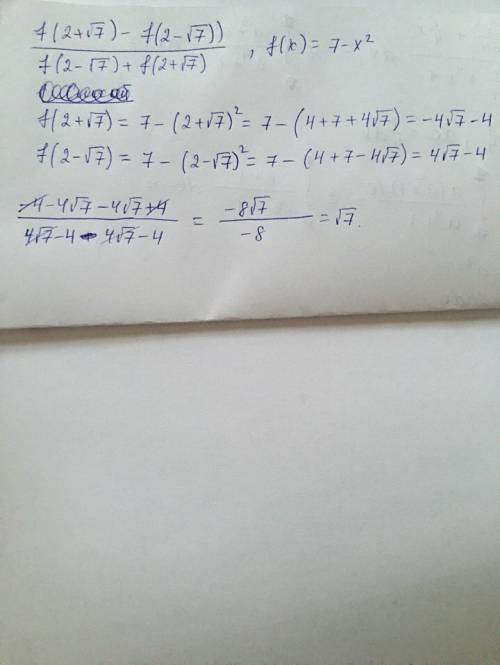 f(2+√7) - f(2-√7)) / f(2-√7) + f(2+√7) , f(x) = 7-x²
f(2+√7) = 7-(2+√7)² = 7-(4+7+4√7) = -4√7-4
f(2-√7) = 7-(2-√7)² = 7-(4+7-4√7) = 4√7-4
-4-4√7-4√7+4 / 4√7-4-4√7-4 = -8√7 / -8 = √7.